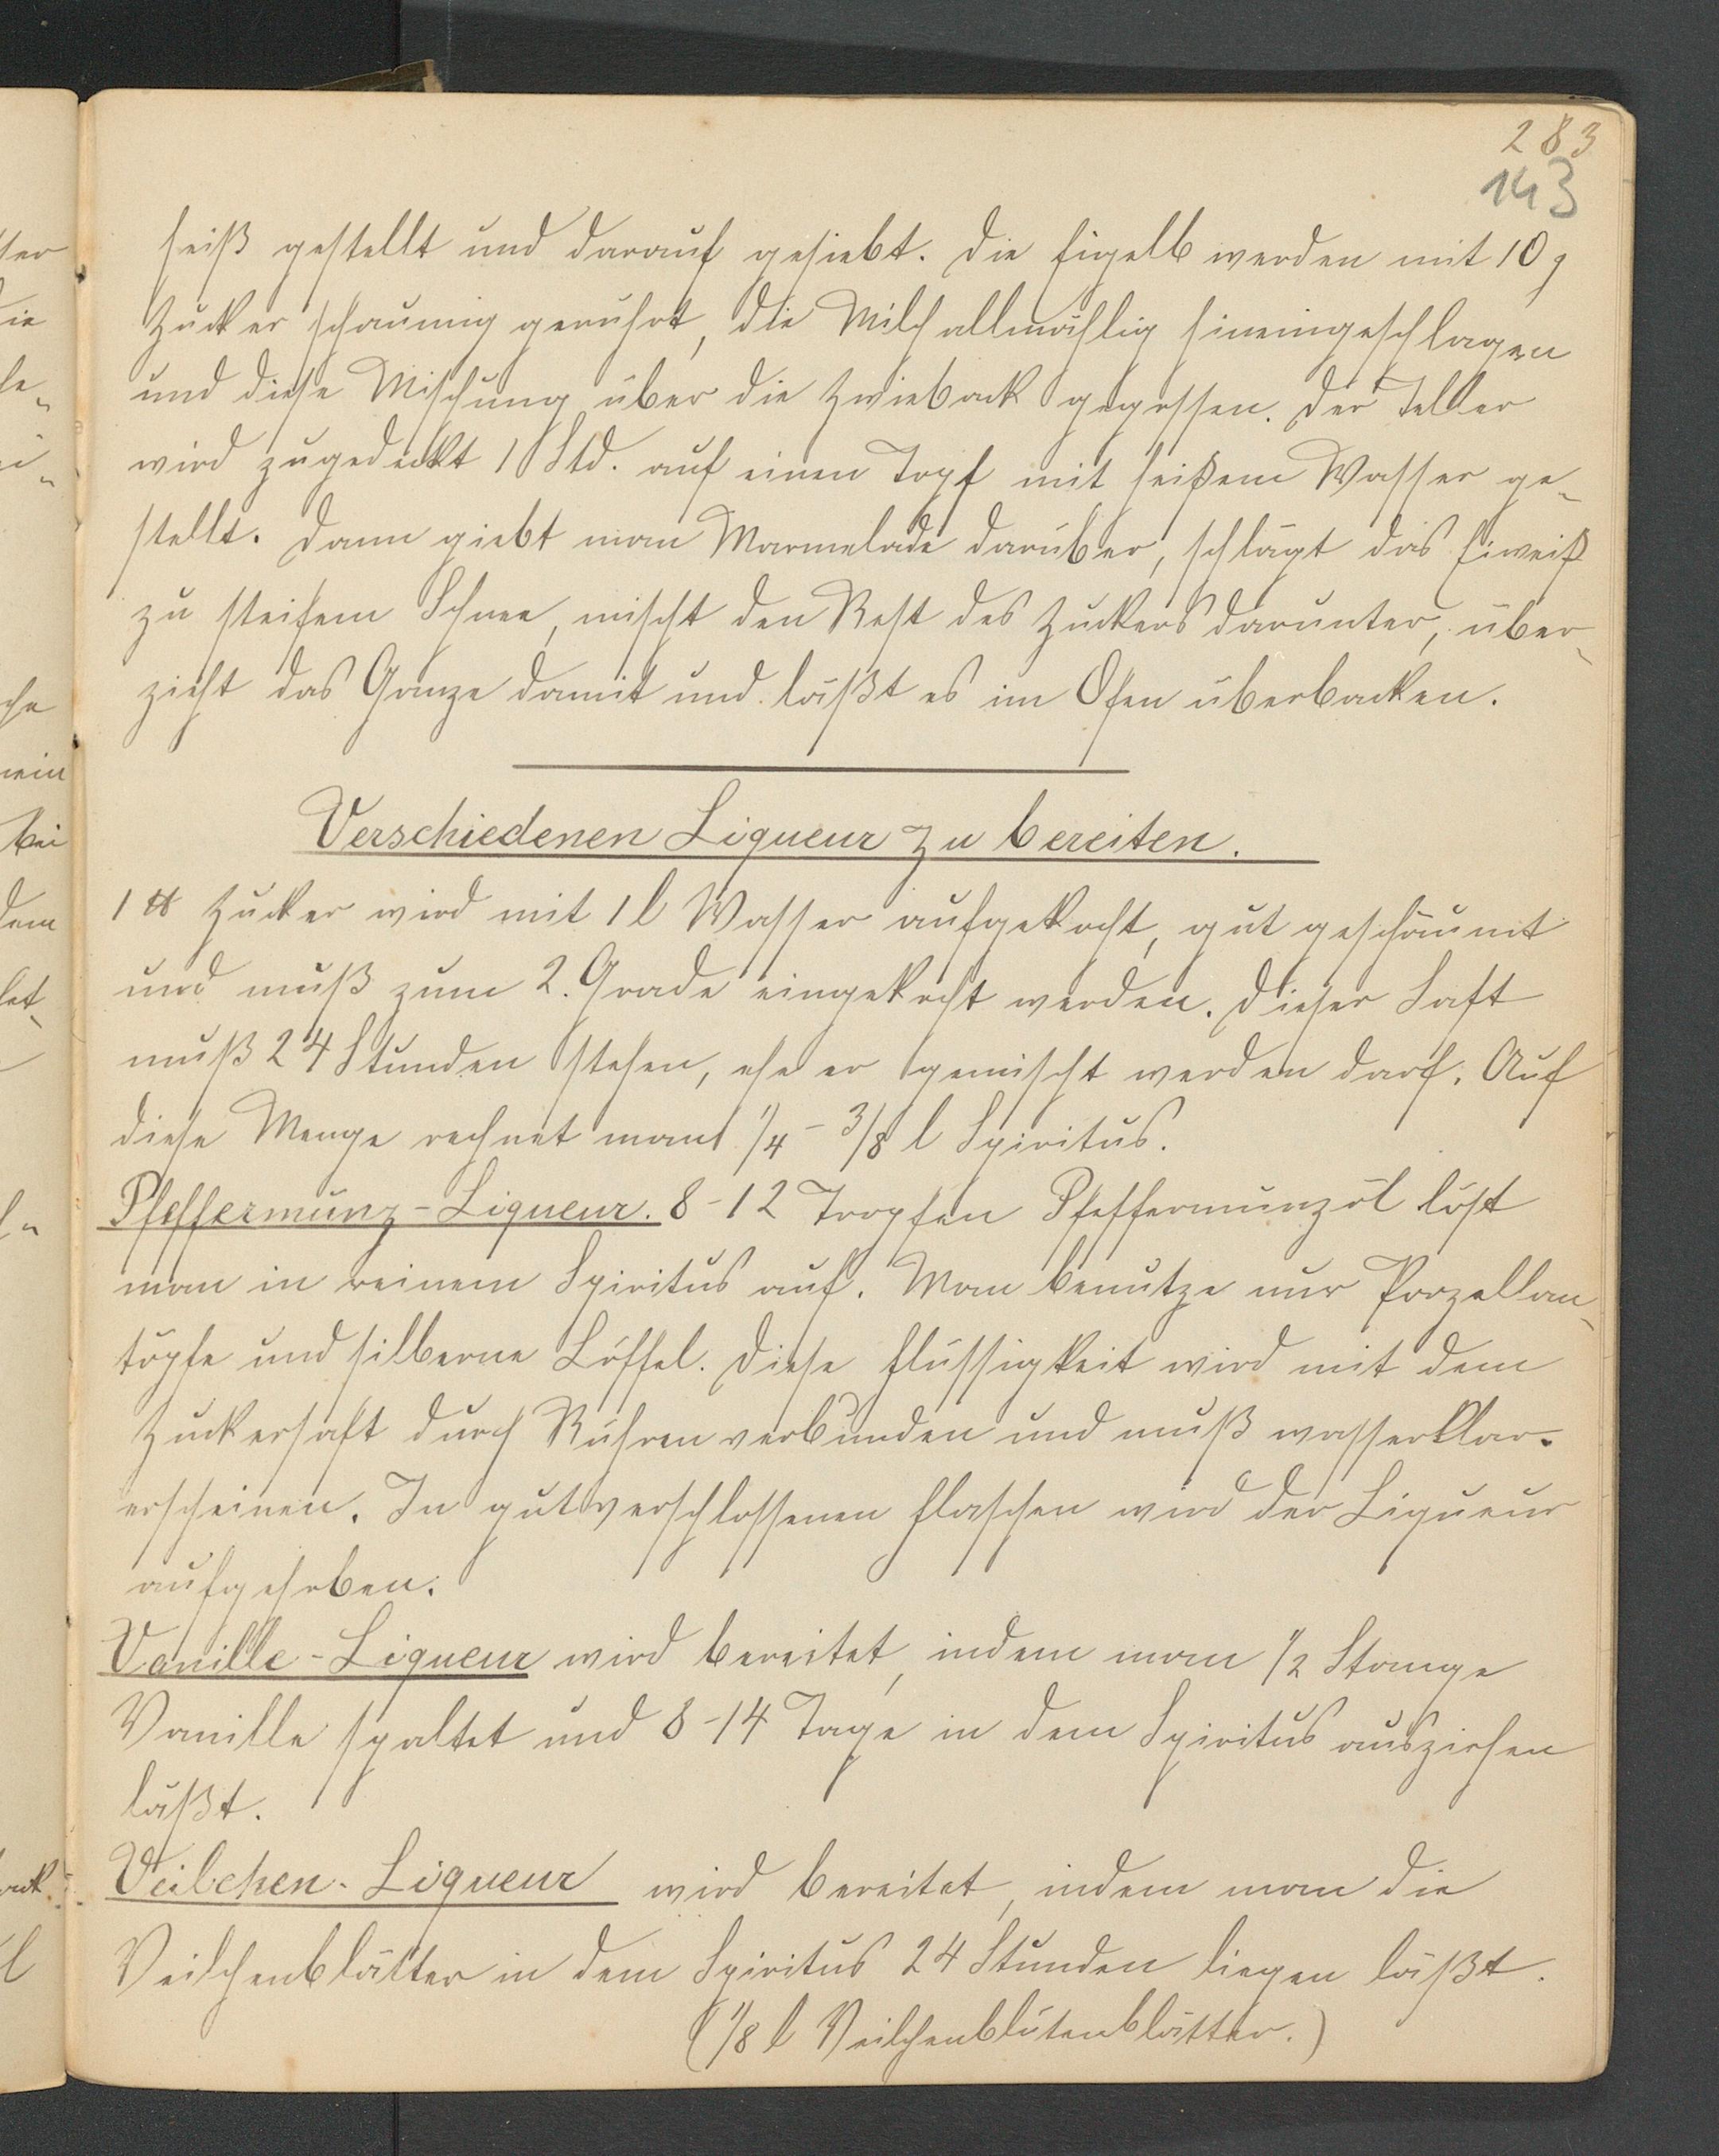 283
143
heiß gestellt und darauf gesiebt. Die Eigelb werden mit 10 g
Zucker schaumig gerührt, die Milch allmählig hineingeschlagen
und diese Mischung über die Zwieback gegossen. Der Teller
wird zugedeckt 1 Std. auf einen Topf mit heißem Wasser ge-
stellt. Dann giebt man Marmelade darüber, schlägt das Eiweiß
zu steifem Schnee, mischt den Rest des Zuckers darunter, über-
zieht das Ganze damit und läßt es im Ofen überbacken.
Verschiedenen Liqueur zu bereiten.
1 ℔ Zucker wird mit 1 l Wasser aufgekocht, gut geschäumt
und muß zum 2. Grade eingekocht werden. Dieser Saft
muß 24 Stunden stehen, ehe er gemischt werden darf. Auf
diese Menge rechnet man 1/4 - 3/8 l Spiritus.
Pfeffermünz-Liqueur. 8-12 Tropfen Pfeffermünzöl löst
man in reinem Spiritus auf. Man benutze nur Porzellan-
töpfe und silberne Löffel. Diese Flüssigkeit wird mit dem
Zuckersaft durch Rühren verbunden und muß wasserklar
erscheinen. In gutverschlossenen Flaschen wird der Liqueur
aufgehoben.
Vanille-Liqueur wird bereitet, indem man 1/2 Stange
Vanille spaltet und 8-14 Tage in dem Spiritus ausziehen
läßt.
Veilchen-Liqueur wird bereitet, indem man die
Veilchenblätter in dem Spiritus 24 Stunden liegen läßt.
(1/8 l Veilchenblütenblätter.)